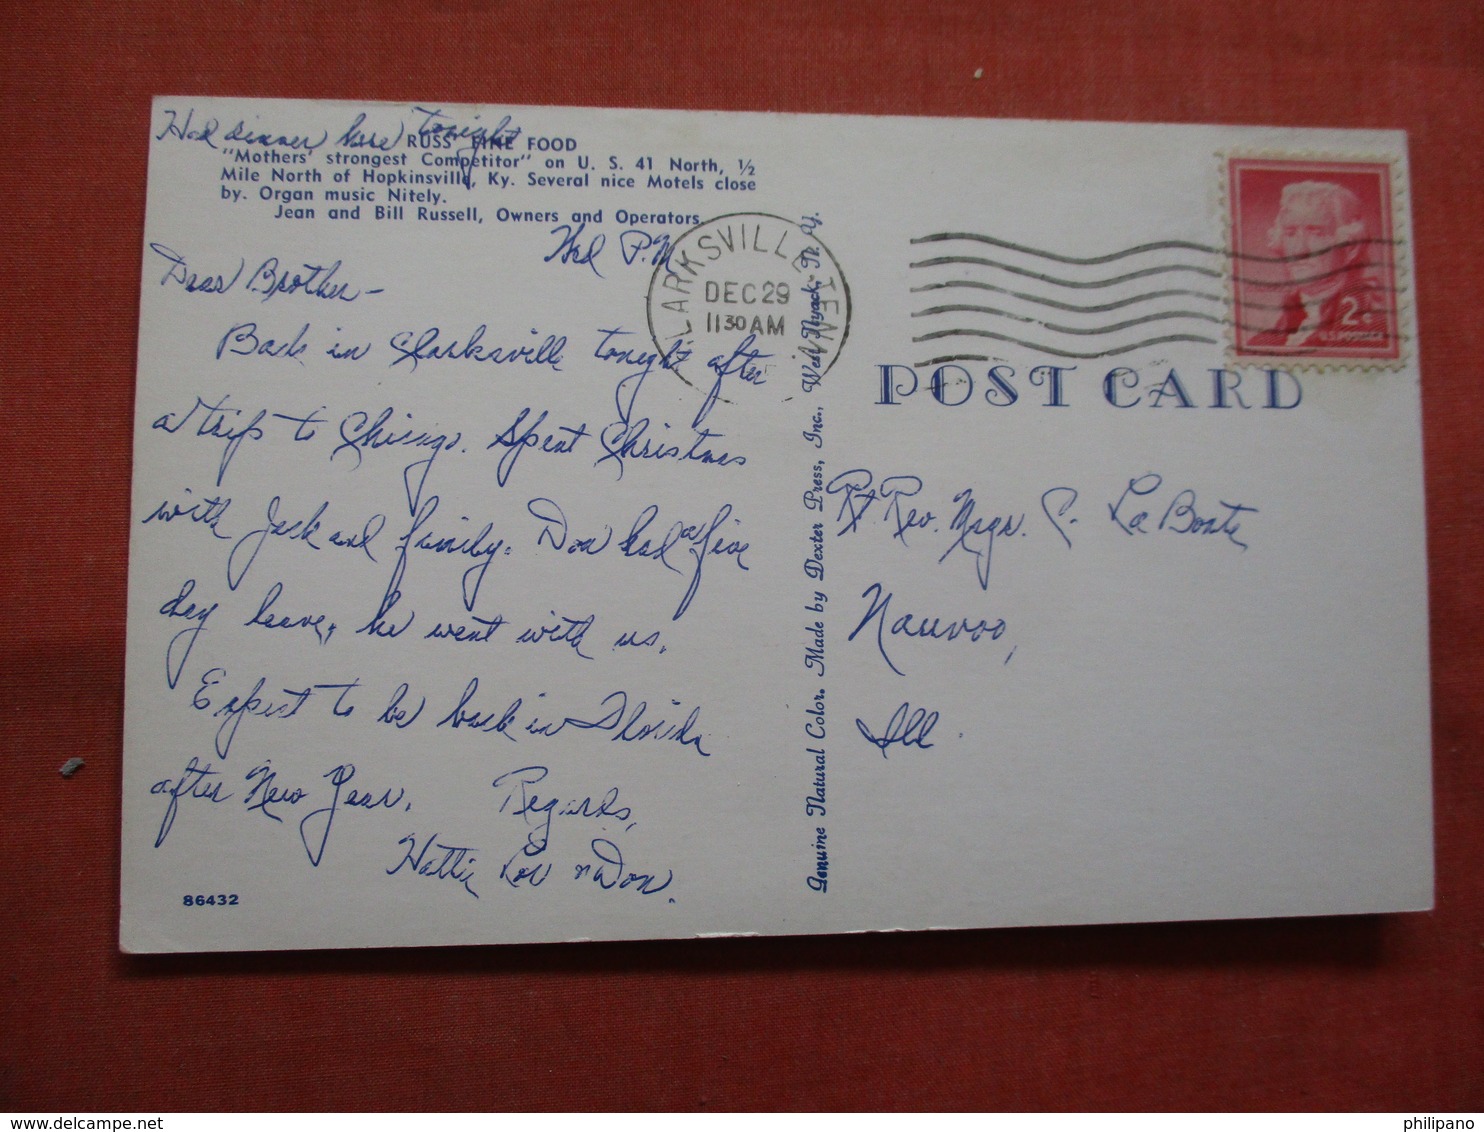 Had dinner here tonight
RUSS' FINE FOOD
"Mothers' strongest Competitor" on U. S. 41 North, ½
Mile North of Hopkinsville, Ky. Several nice Motels close
by. Organ music Nitely.
Jean and Bill Russell, Owners and Operators.
Wed P.M.
Dear Brother -
Back in Clarksville tonight after
a trip to Chicago. Spent Christmas
with Jack and family. Don had a five
day leave, he went with us.
Expect to be back in Florida
after New Year. Regards,
Hattie Lou n Don.
86432
Genuine Natural Color. Made by Dexter Press, Inc., West Nyack, N. Y.
CLARKSVILLE TENN
DEC 29
11 30 AM
2¢
U.S. POSTAGE
POST CARD
Rt. Rev. Msgr. C. La Bonte
Nauvoo,
Ill.
delcampe.net
philipano